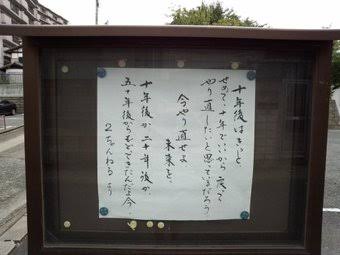 十年後はきっと
せめて、十年でいいから戻って
やり直したいと思っているだろう
今やり直せよ
未来を。
十年後か二十年後か、
五十年後からもどってきたんだよ今。
2ちゃんねる より